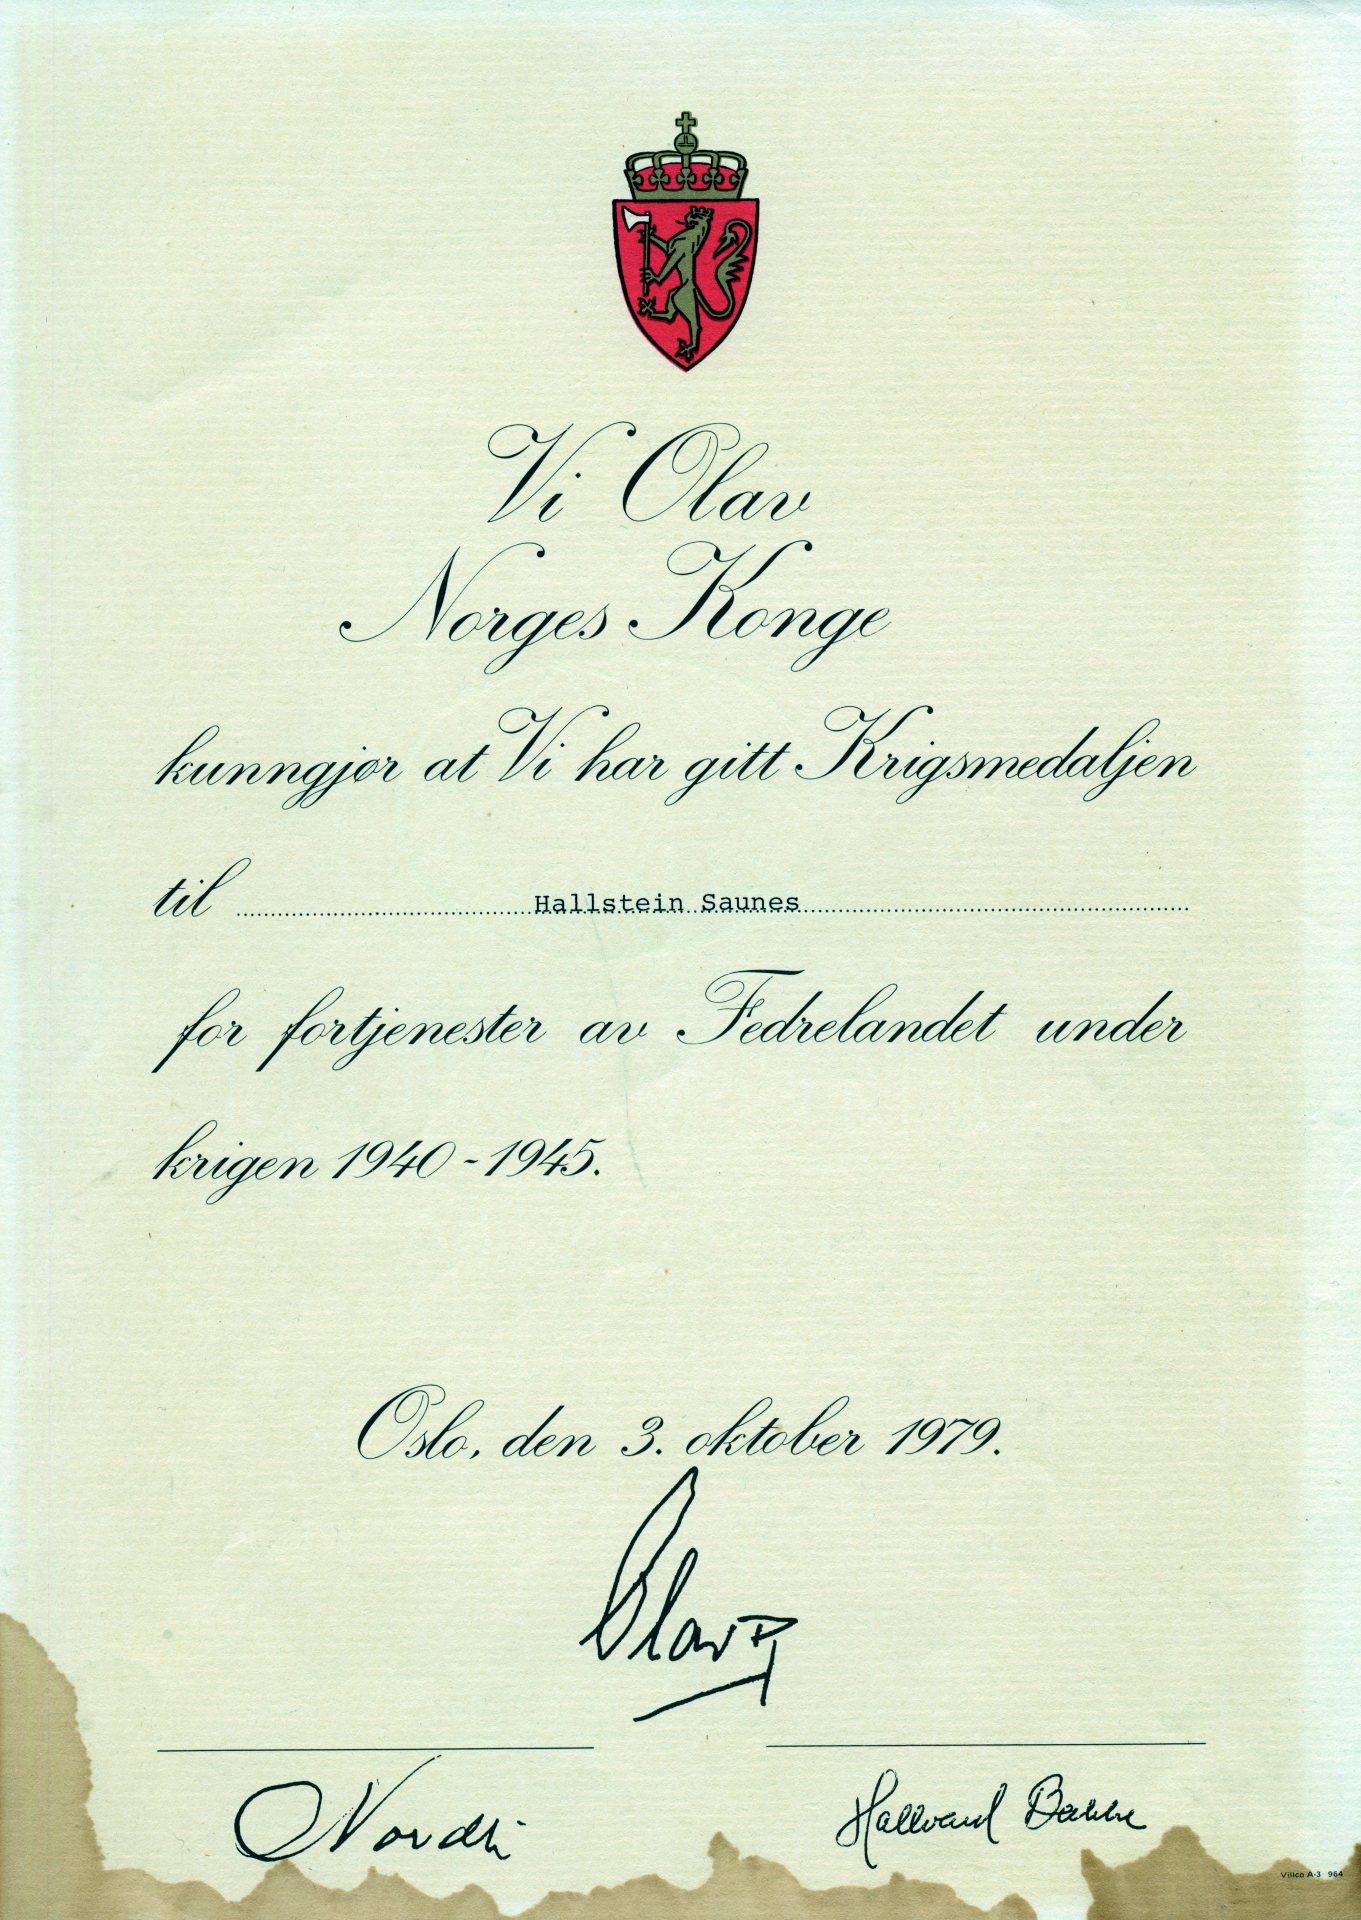 Vi Olav
Norges Konge
kunngjør at Vi har gitt Krigsmedaljen
til Hallstein Saunes
for fortjenester av Fedrelandet under
krigen 1940-1945.
Oslo, den 3. oktober 1979.
Olav R
Nordli
Hallvard Bakke
Villco A-3 964